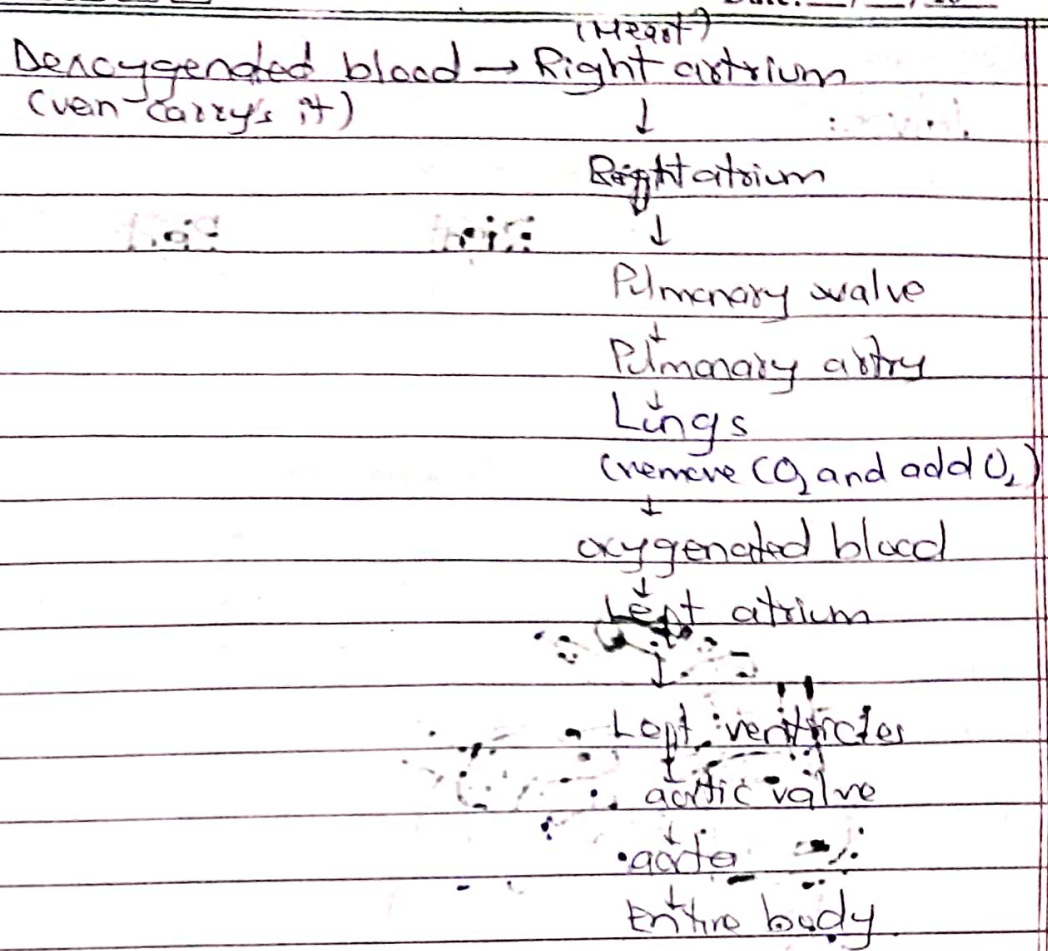 (Heart)
Deoxygenated blood → Right artrium
(vein carry's it)
↓
Right atrium
↓
Pulmonary valve
↓
Pulmonary artry
↓
Lungs
(remove CO₂ and add O₂)
↓
oxygenated blood
↓
Left atrium
↓
Left ventricles
↓
aortic valve
↓
aorta
↓
Entire body